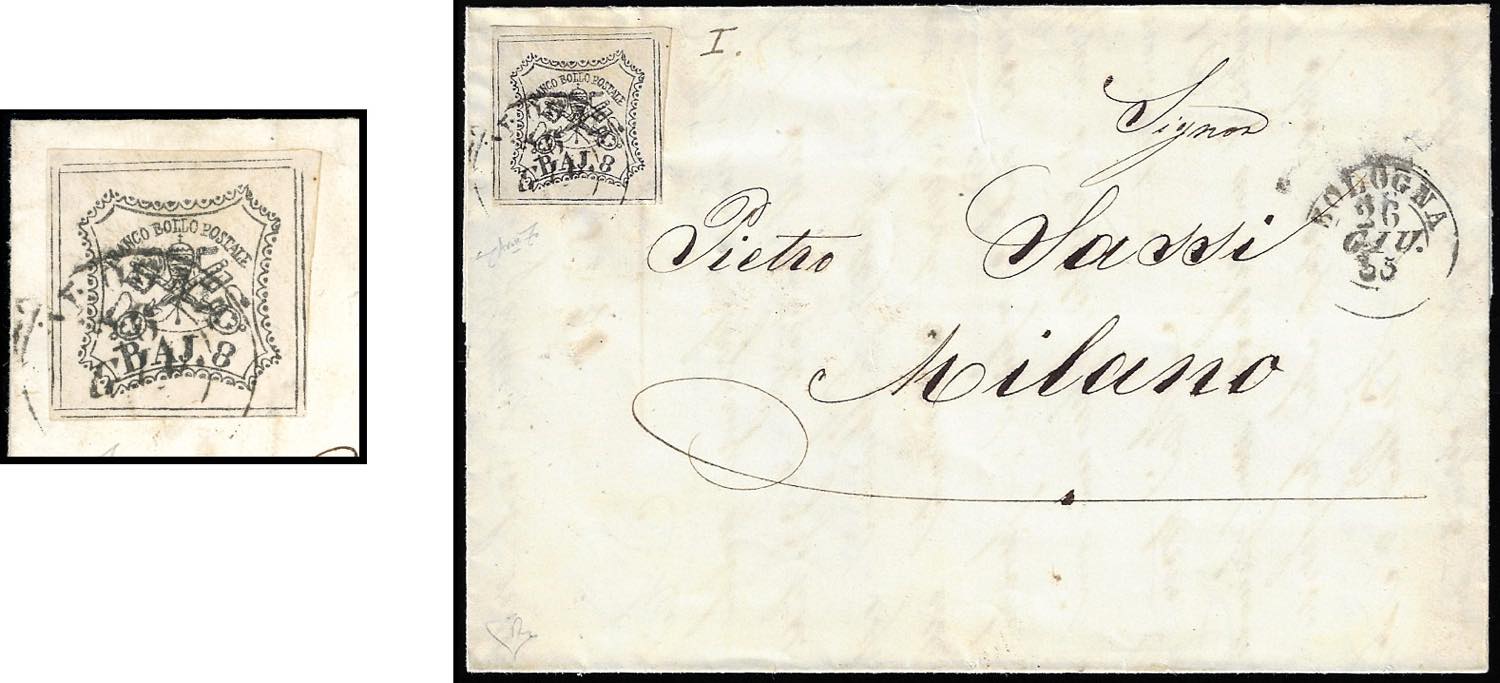 FRANCO BOLLO POSTALE
BAJ. 8
I.
FRANCO BOLLO POSTALE
BAJ. 8
Signor
Pietro Sassi
Milano
BOLOGNA
26
GIU.
55